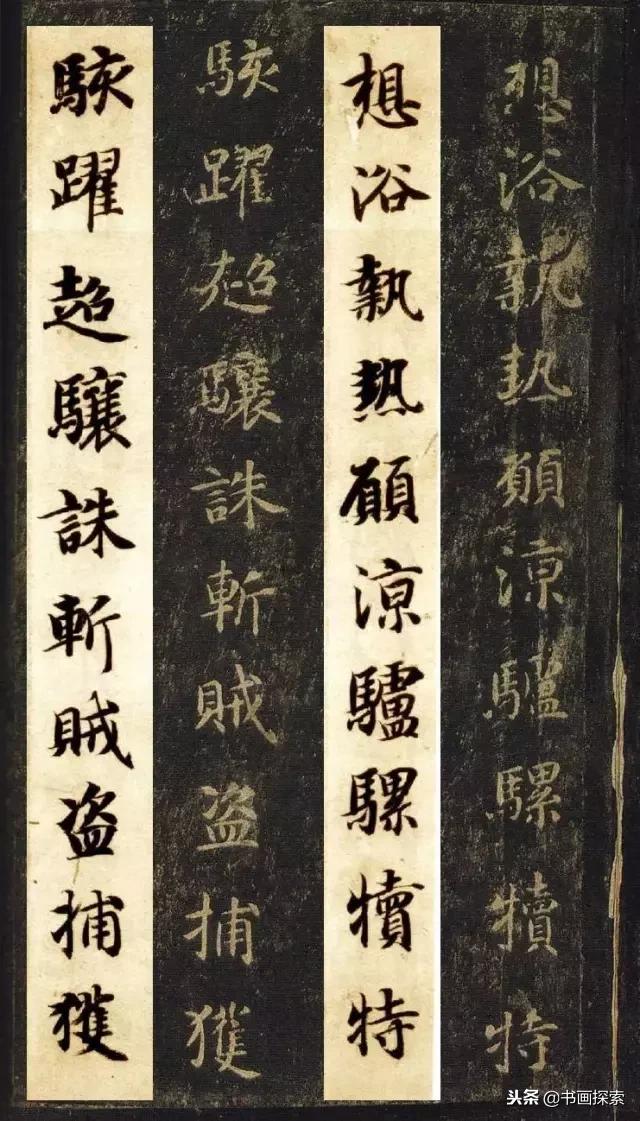 想浴執熱願涼驢騾犢特
想浴執熱願涼驢騾犢特
駭躍超驤誅斬賊盗捕獲
駭躍超驤誅斬賊盗捕獲
头条 @书画探索